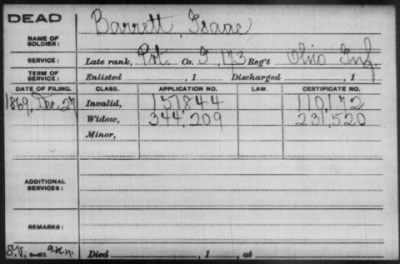 DEAD
NAME OF SOLDIER: Barrett, Isaac
SERVICE: Late rank, Pvt. Co. I, 173 Reg't Ohio Inf.
TERM OF SERVICE: Enlisted , 1 Discharged , 1
DATE OF FILING. CLASS. APPLICATION NO. LAW. CERTIFICATE NO.
1869, Dec. 27 Invalid, 157844 110,172
Widow, 344,209 231,520
Minor,
ADDITIONAL SERVICES:
REMARKS:
Died , 1 , at